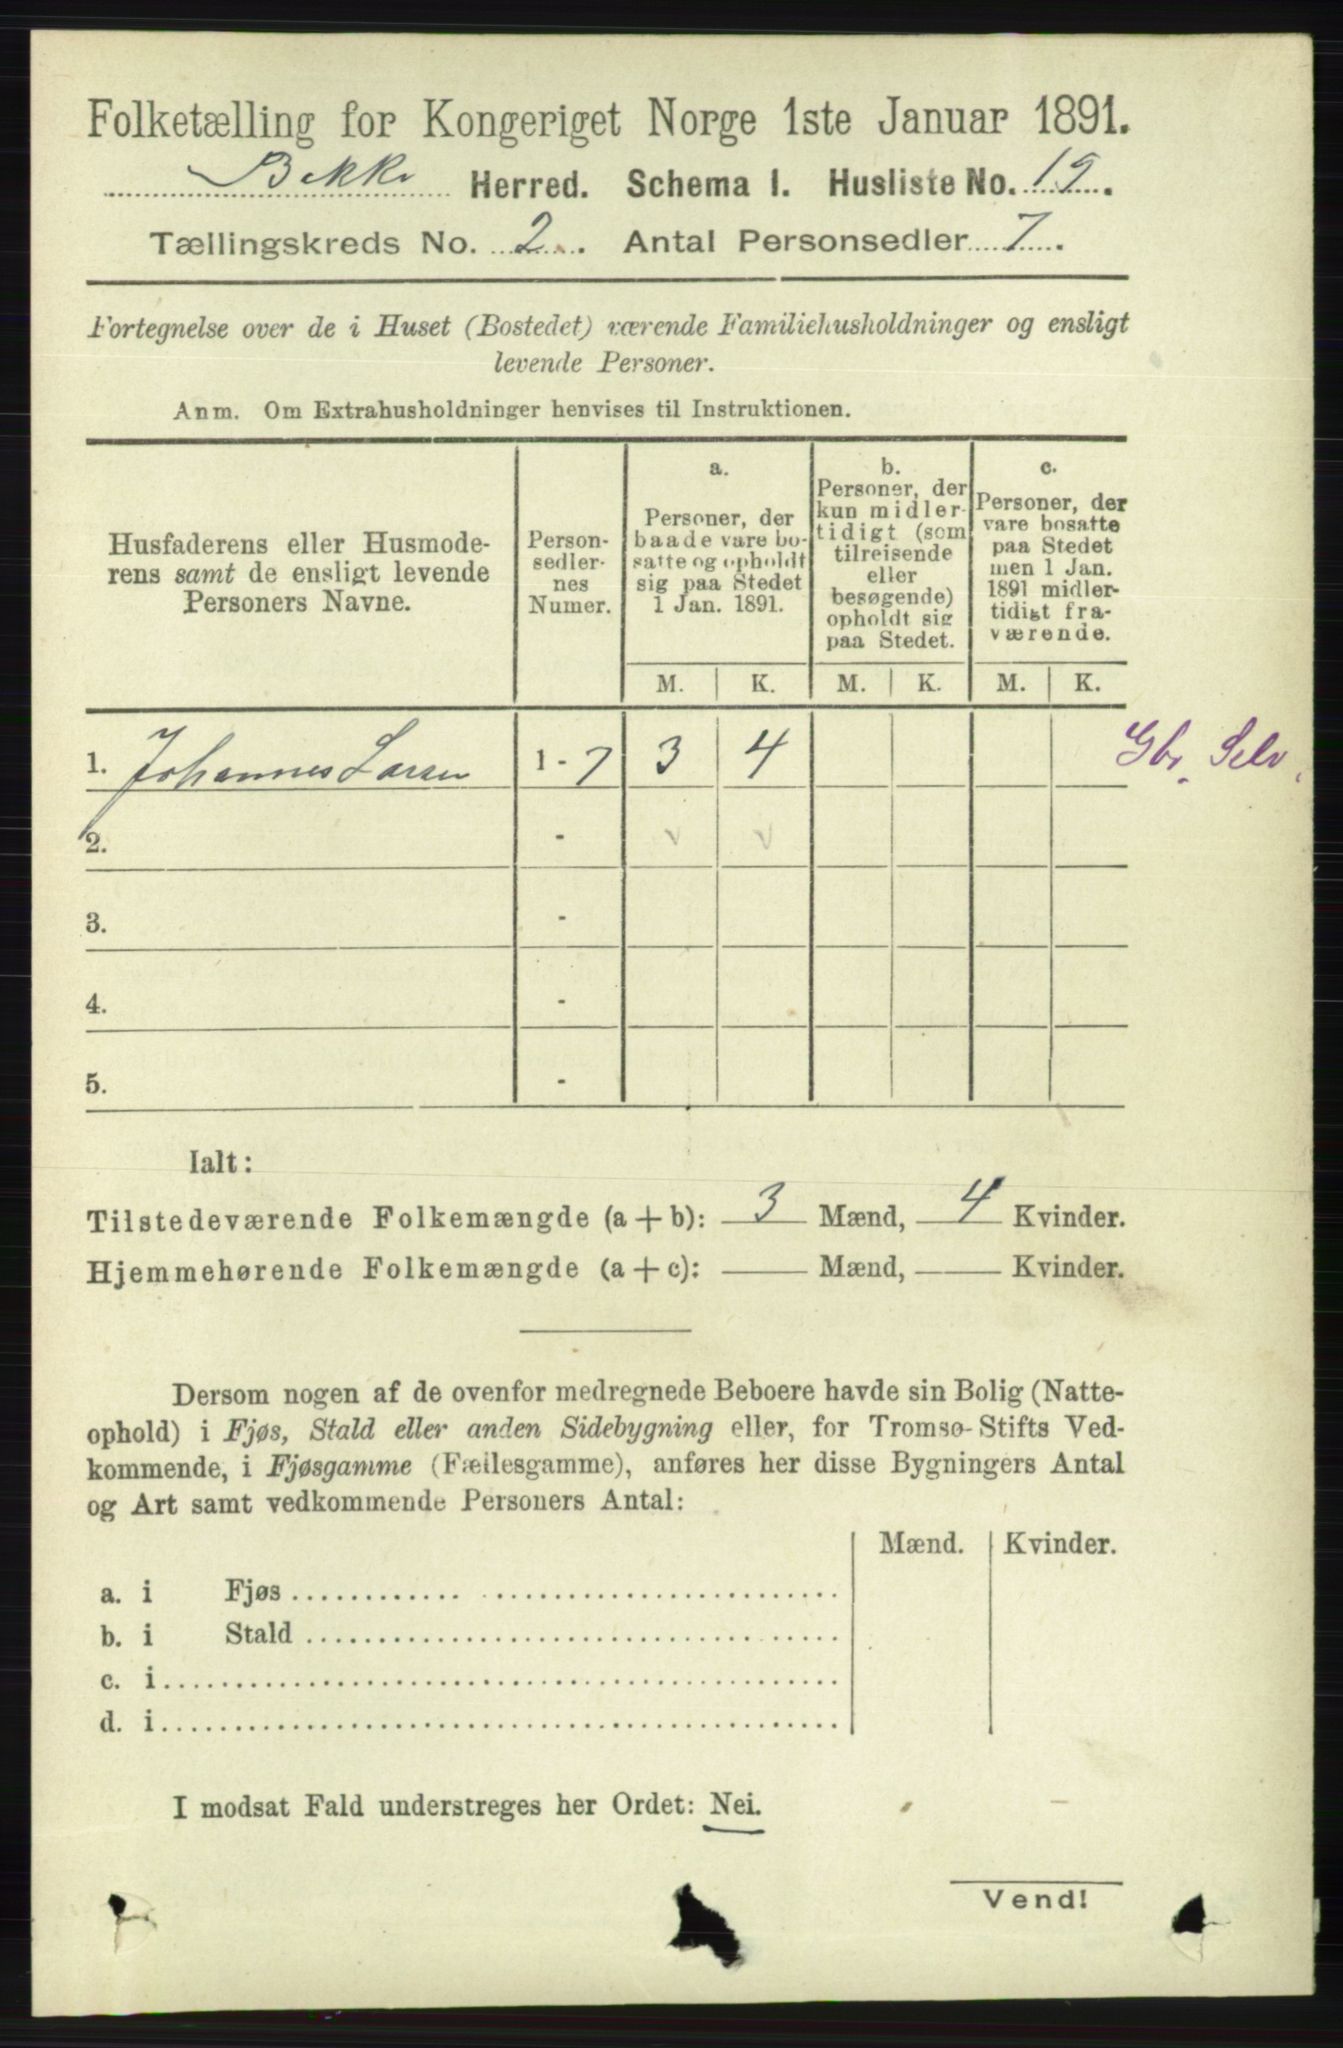 Folketælling for Kongeriget Norge 1ste Januar 1891.
Bakke Herred. Schema I. Husliste No. 19.
Tællingskreds No. 2. Antal Personsedler 7.
Fortegnelse over de i Huset (Bostedet) værende Familiehusholdninger og ensligt
levende Personer.
Anm. Om Extrahusholdninger henvises til Instruktionen.
Husfaderens eller Husmode-
rens samt de ensligt levende
Personers Navne.
Person-
sedler-
nes
Numer.
a.
Personer, der
baade vare bo-
satte og opholdt
sig paa Stedet
1 Jan. 1891.
b.
Personer, der
kun midler-
tidigt (som
tilreisende
eller
besøgende)
opholdt sig
paa Stedet.
c.
Personer, der
vare bosatte
paa Stedet
men 1 Jan.
1891 midler-
tidigt fra-
værende.
M. K. M. K. M. K.
1. Johannes Larsen 1 - 7 3 4 Gbr. Selv.
2. - v v
3. -
4. -
5. -
Ialt:
Tilstedeværende Folkemængde (a + b): 3 Mænd, 4 Kvinder.
Hjemmehørende Folkemængde (a + c): Mænd, Kvinder.
Dersom nogen af de ovenfor medregnede Beboere havde sin Bolig (Natte-
ophold) i Fjøs, Stald eller anden Sidebygning eller, for Tromsø Stifts Ved-
kommende, i Fjøsgamme (Fællesgamme), anføres her disse Bygningers Antal
og Art samt vedkommende Personers Antal:
Mænd. Kvinder.
a. i Fjøs
b. i Stald
c. i
d. i
I modsat Fald understreges her Ordet: Nei.
Vend!